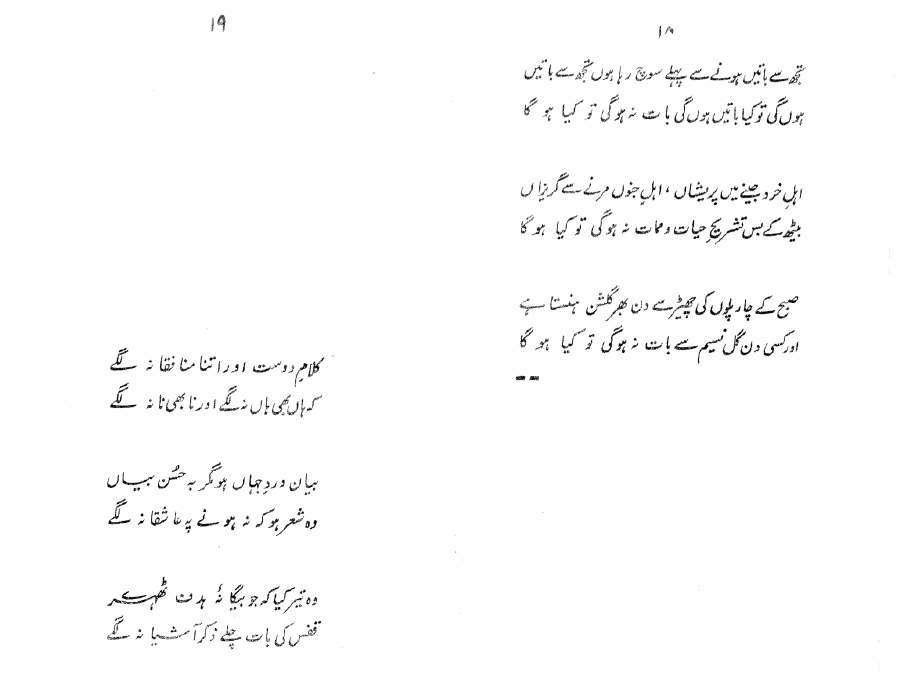 ۱۸
تجھ سے باتیں ہونے سے پہلے سوچ رہا ہوں تجھ سے باتیں
ہوں گی تو کیا باتیں ہوں گی بات نہ ہو گی تو کیا ہو گا
اہلِ خرد جینے میں پریشاں، اہلِ جنوں مرنے سے گریزاں
بیٹھ کے بس تشریحِ حیات و ممات نہ ہو گی تو کیا ہو گا
صبح کے چار پلوں کی چھیڑ سے دن بھر گلشن ہنستا ہے
اور کسی دن گل نسیم سے بات نہ ہو گی تو کیا ہو گا
۱۹
کلامِ دوست اور اتنا منافقانہ لگے
کہ ہاں بھی ہاں نہ لگے اور نا بھی نا نہ لگے
بیان وردِ جہاں ہو مگر بہ حُسن بیاں
وہ شعر ہو کہ نہ ہونے پہ عاشقانہ لگے
وہ تیر کیا کہ جو بیگانۂ ہدف ٹھہرے
قفس کی بات چلے ذکر آشیانہ لگے